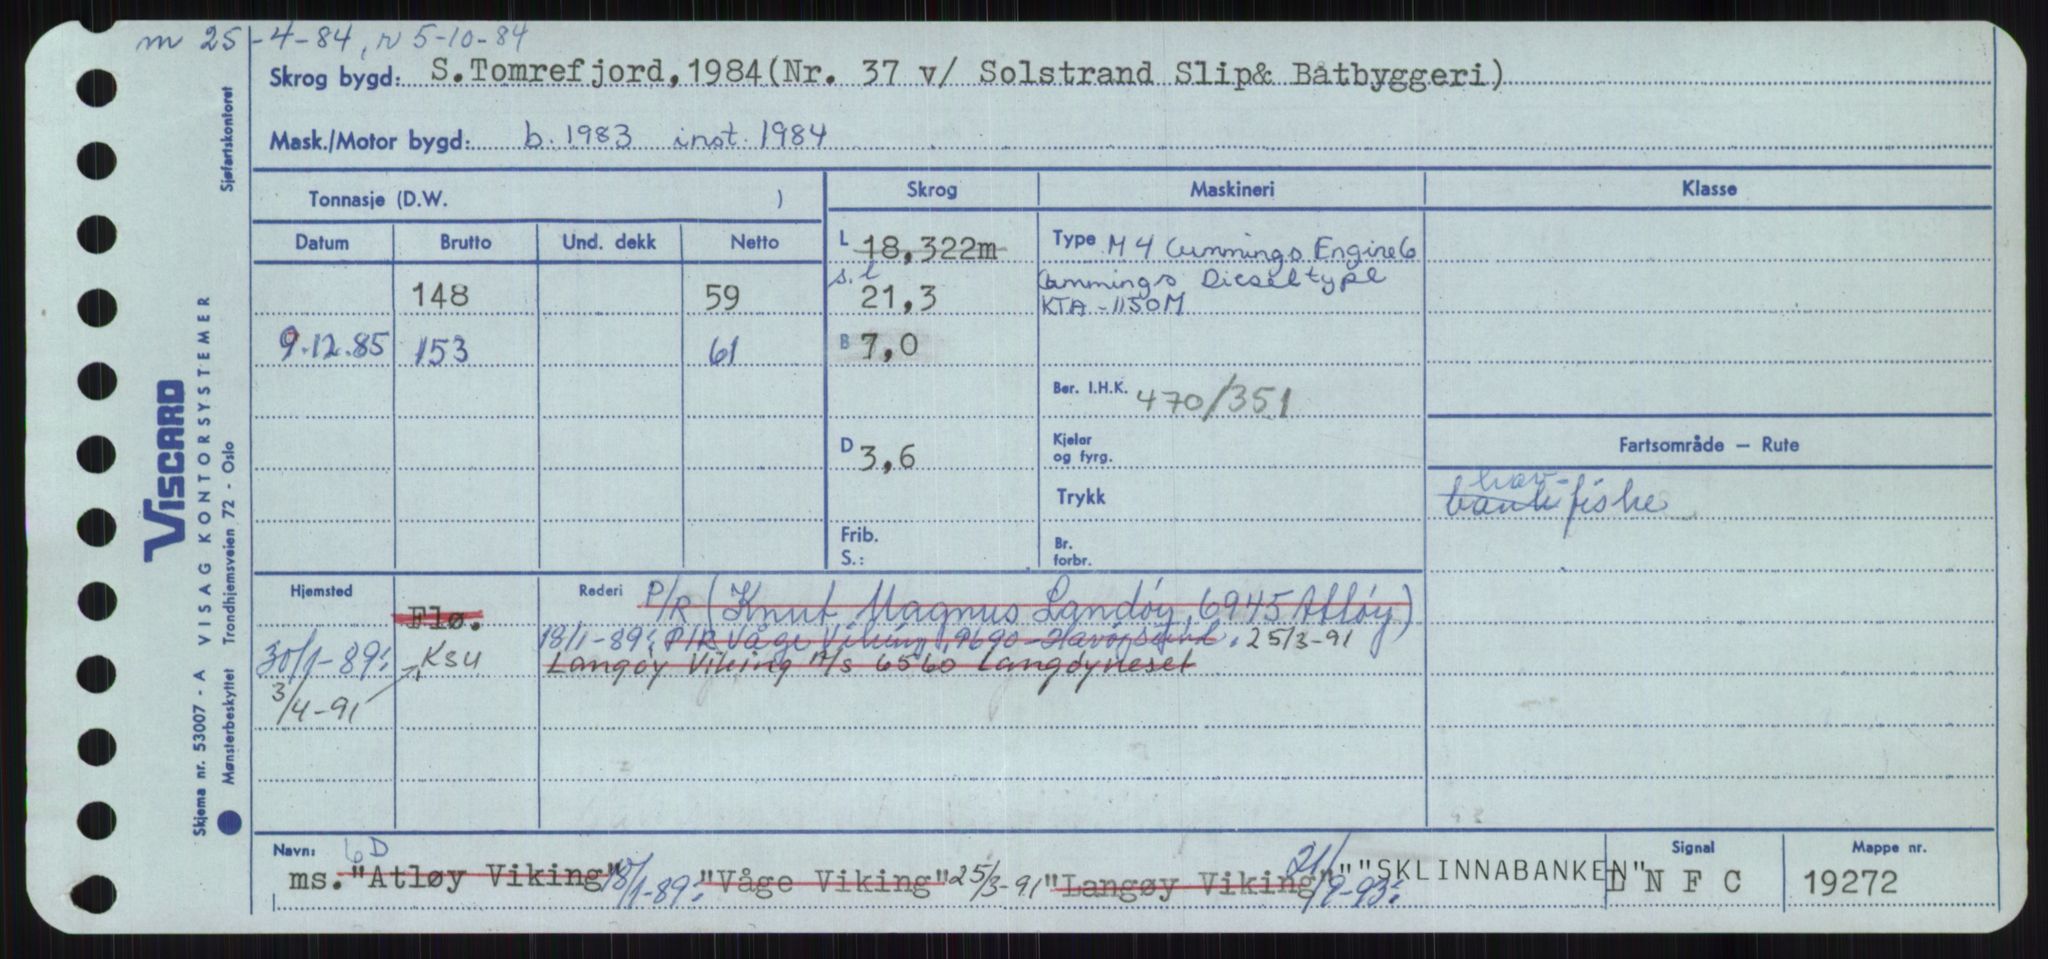 m 25-4-84, r 5-10-84
Skrog bygd: S.Tomrefjord,1984(Nr. 37 v/ Solstrand Slip& Båtbyggeri)
Mask./Motor bygd: b. 1983 inst. 1984
Tonnasje (D.W. )
Skrog
Maskineri
Klasse
Datum Brutto Und. dekk Netto
L 18,322m
Type M 4 Cummings Engine 6
s.l
Cummings Dieseltype
148 59
21,3
KTA-1150M
9.12.85 153 61
B 7,0
Ber. I.H.K. 470/351
D 3,6
Kjeler
og fyrg.
Fartsområde — Rute
Trykk
hav-
bankfiske
Frib.
S.:
Br.
forbr.
Hjemsted
Flø.
Rederi P/R (Knut Magnus Landøy, 6945 Atløy)
30/1-89: KSU
18/1-89: P/R Våge Viking, 9690 Havøysund. 25/3-91
Langøy Viking A/S 6560 Langøyneset
3/4-91
Navn: 6D
ms. "Atløy Viking" 18/1-89: "Våge Viking" 25/3-91 "Langøy Viking" 21/9-93: "SKLINNABANKEN"
Signal
L N F C
Mappe nr.
19272
Sjøfartskontoret
VISCARD
VISAG KONTORSYSTEMER
Trondhjemsveien 72 - Oslo
Skjema nr. 53007 - A
Mønsterbeskyttet